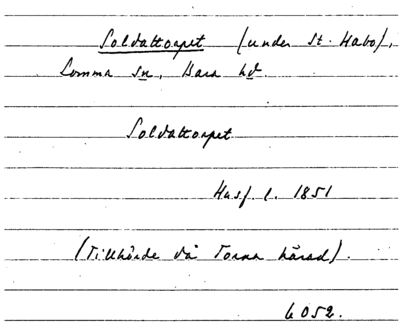 Soldattorpet (under St. Habo),
Lomma sn, Bara hd.
Soldattorpet
Husf. l. 1851
(Tillhörde då Torna härad).
6052.